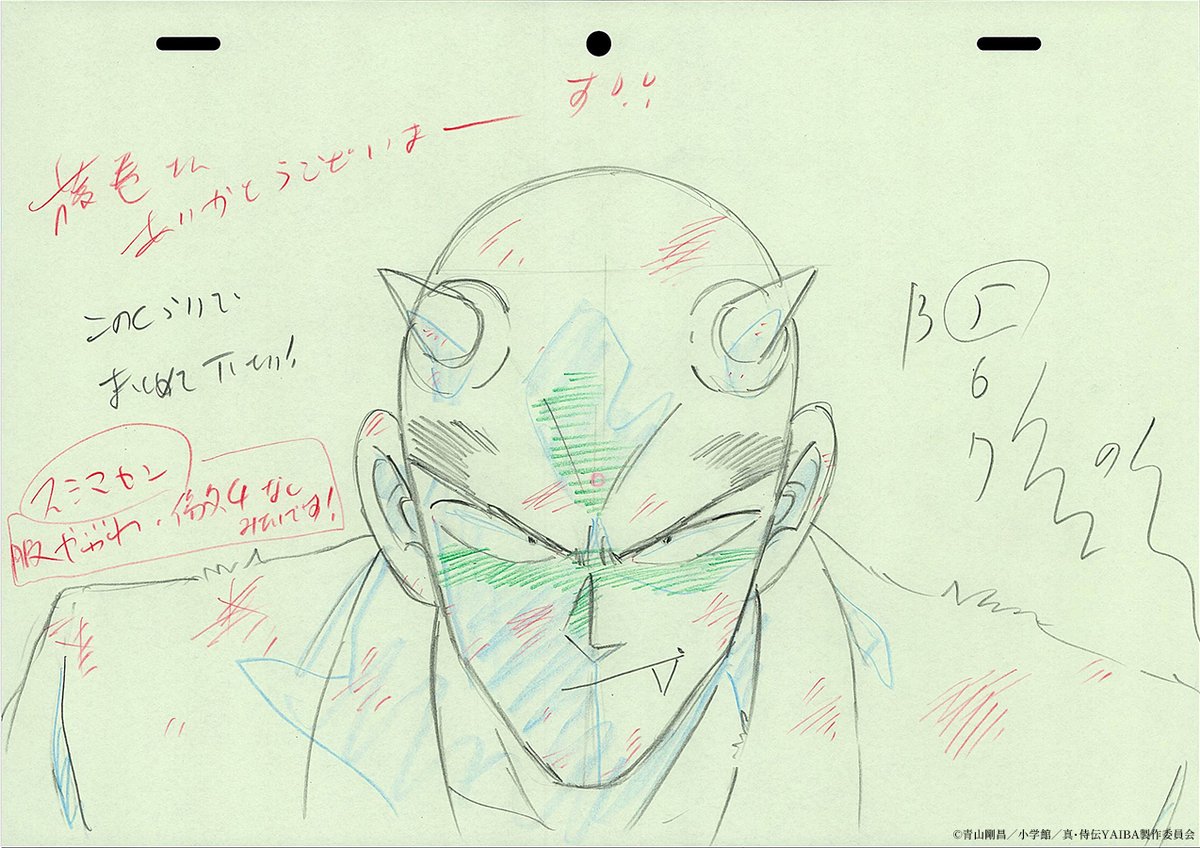 さん
ありがとうございまーす!!
このくらいで
まとめて下さい!
スミマセン
服やぶれ・傷なし
みたいです!
B
6
7
©青山剛昌／小学館／真・侍伝YAIBA製作委員会